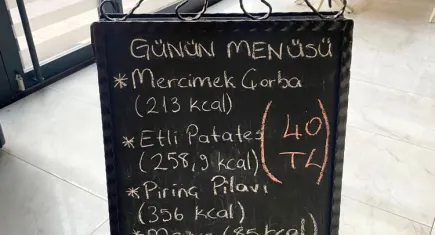 GÜNÜN MENÜSÜ
* Mercimek Çorba
(213 kcal)
* Etli Patates
(258,9 kcal)
(40
TL)
* Pirinç Pilavı
(356 kcal)
(85 kcal)